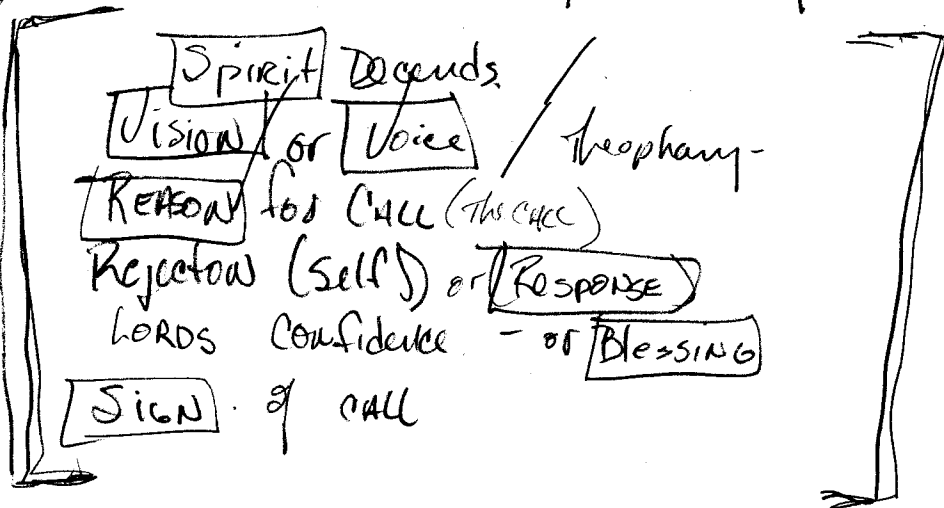 Spirit Decends
Vision or Voice / Theophany-
REASON for CALL (The CALL)
Rejection (Self) or (RESPONSE)
LORDS Confidence - or BlessiNG
SiGN of CALL